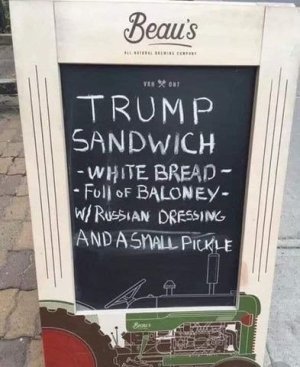 Beau's
ALL NATURAL BREWING COMPANY
VKH ONT
TRUMP
SANDWICH
- WHITE BREAD -
- Full OF BALONEY -
W/ RUSSIAN DRESSING
AND A SMALL PICKLE
Beau's